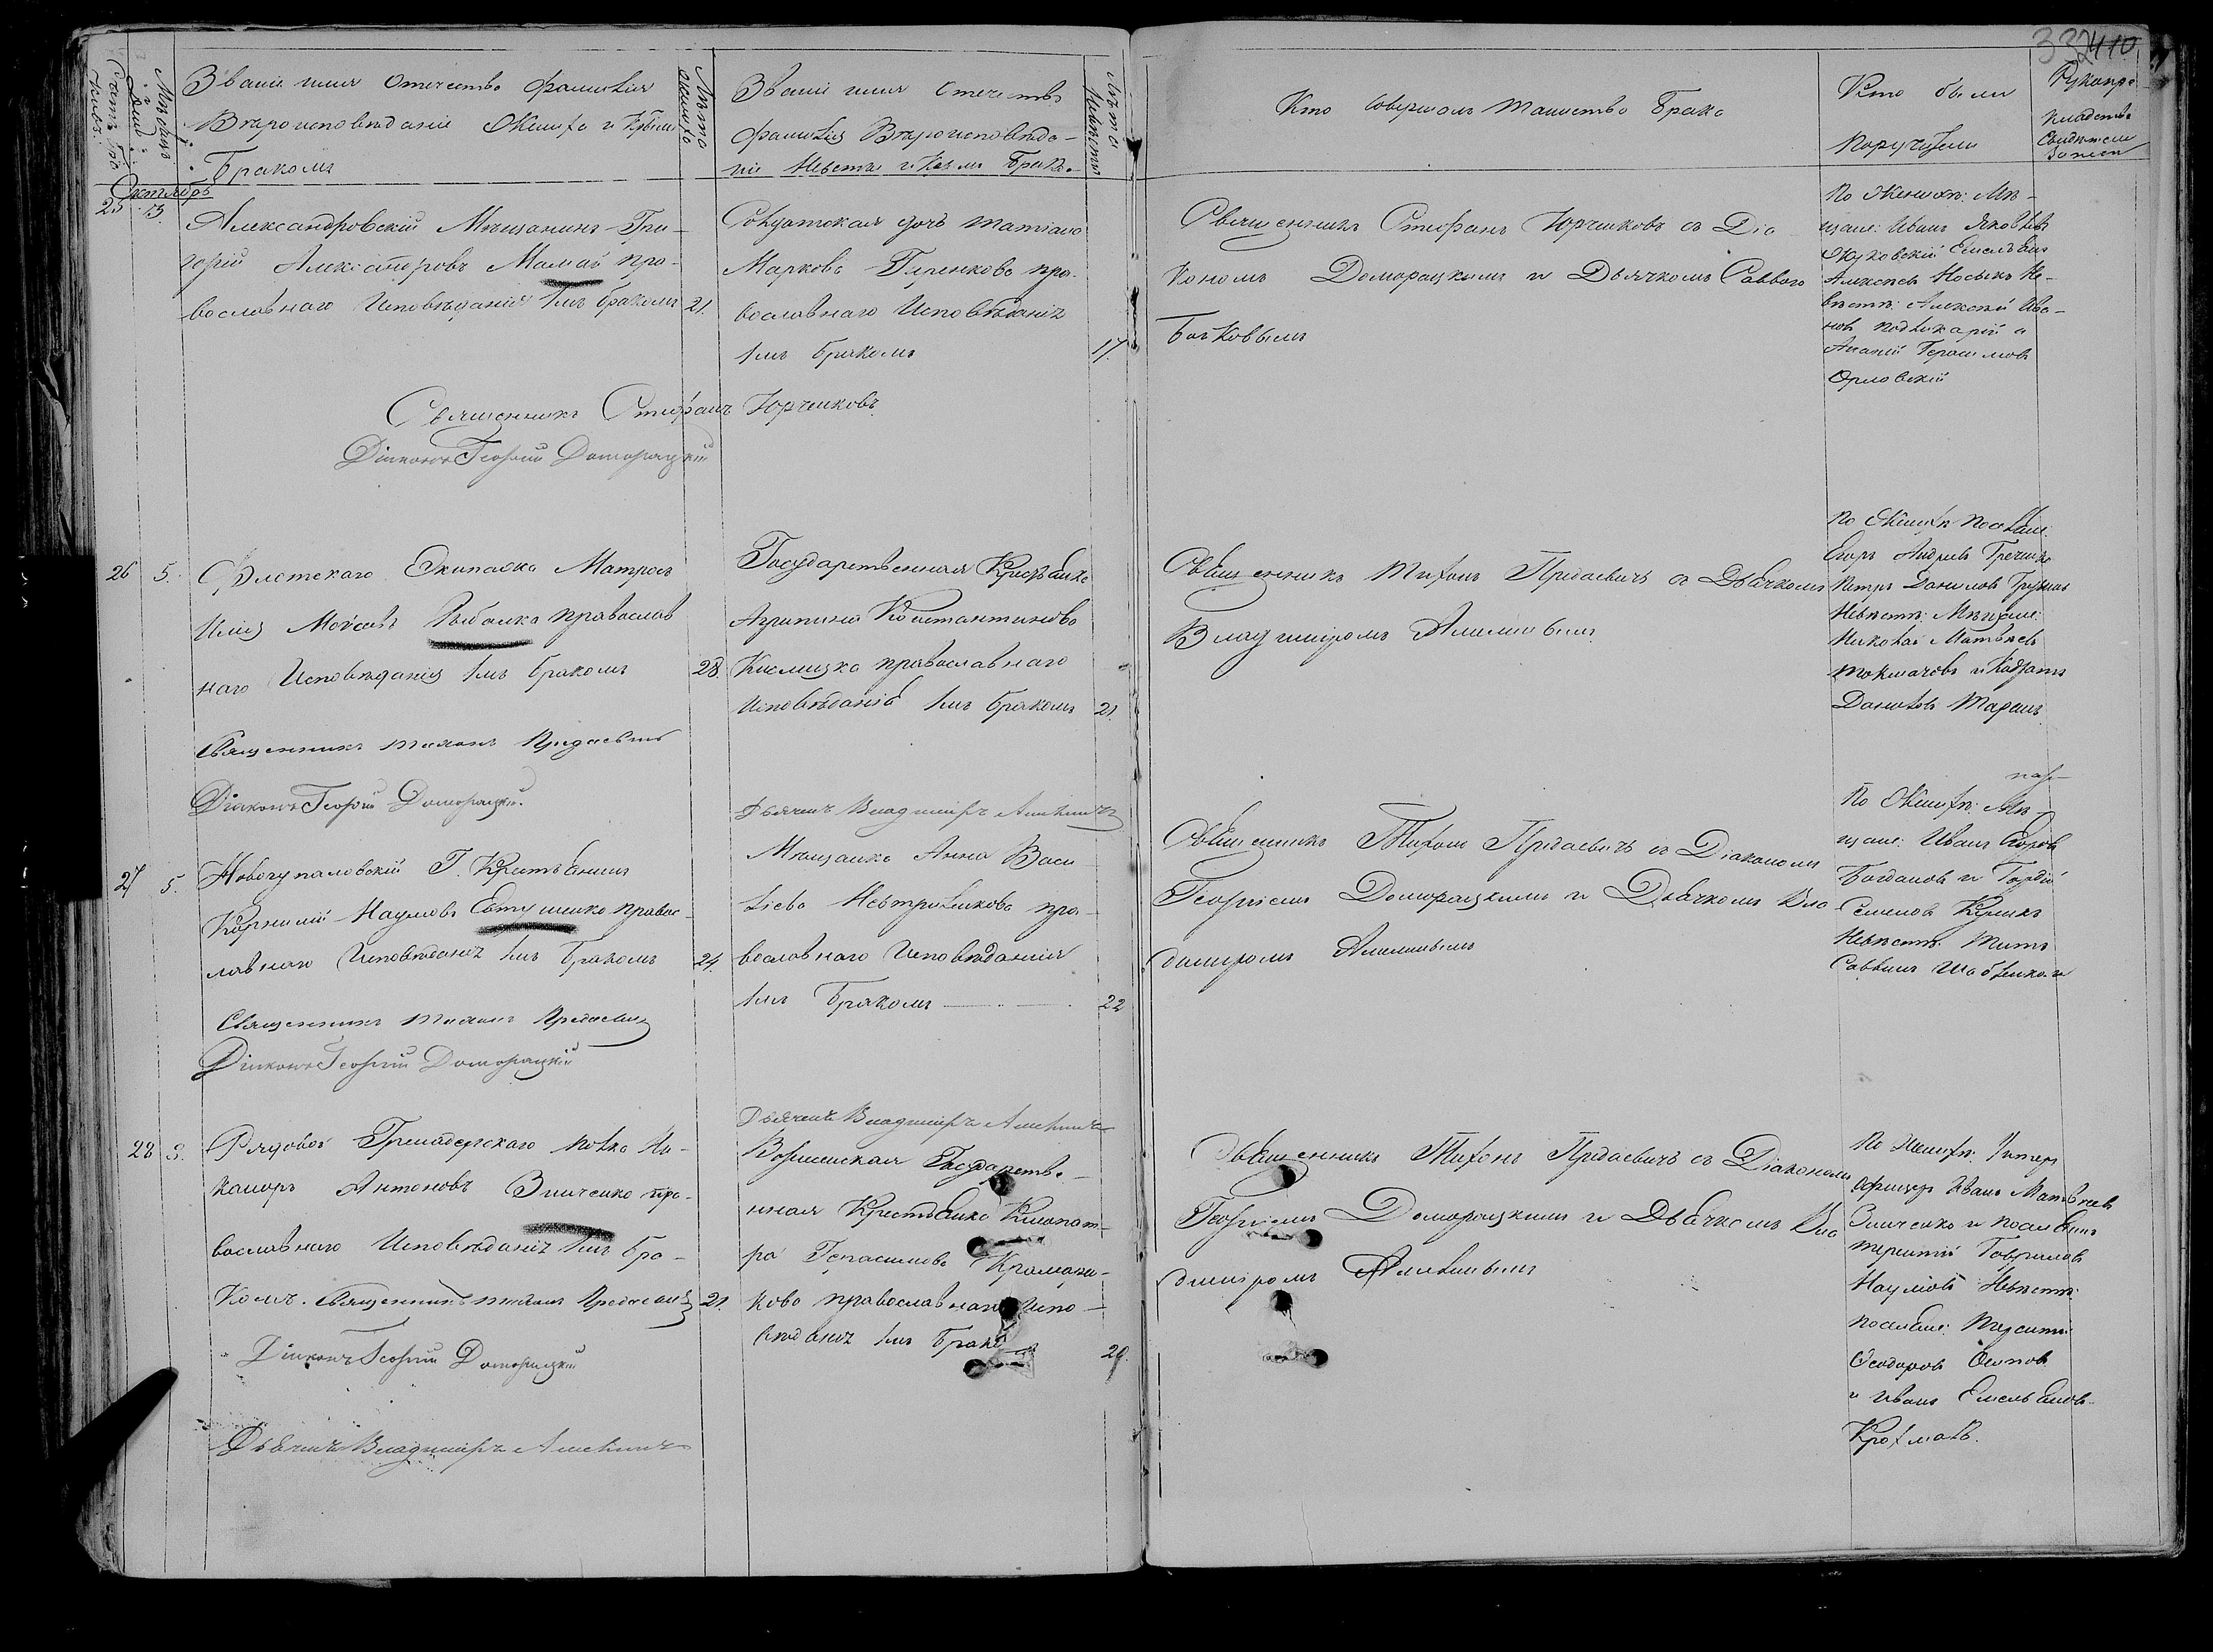 332 410
Счетъ браковъ.
Мѣсяцъ и День.
Званіе имя Отечество фамилія
Вѣроисповѣданіе Жениха и коимъ
Бракомъ
Лѣта жениха
Званіе имя Отечество
фамилія Вѣроисповѣда-
ніе Невѣсты и Коимъ Брако-
Лѣта Невѣсты
Кто Совершалъ Таинство Брака
Кто были
Поручители
Рукопри-
кладство
Свидѣтели
Записи
Октябрь
25 3.
Александровскій Мѣщанинъ Гри-
горій Александровъ Мамай пра-
вославнаго Исповѣданія 1мъ бракомъ 21.
Солдатская дочь Татіана
Маркова Гиренкова пра-
вославнаго Исповѣданія
1мъ бракомъ 17.
Священникъ Стефанъ Юрченковъ съ Діа
кономъ Доморацкимъ и Дьячкомъ Саввою
Бойковымъ
По Женихѣ: Мѣ-
щане: Иванъ Яковлевъ
Жуковскій Емельянъ
Алексѣевъ Носыкъ Не-
вѣстѣ: Алексѣй Ива-
новъ Подлекарій и
Ананій Герасимовъ
Орловскій
Священникъ Стефанъ Юрченковъ
Діаконъ Георгій Доморацкій
26 5.
Флотскаго Экипажа Матросъ
Илія Моисѣевъ Рыбалка православ
наго Исповѣданія 1мъ бракомъ 28.
Государственная Крестьянка
Агрипина Константинова
Кислицка православнаго
Исповѣданія 1мъ бракомъ 21.
Священникъ Тихонъ Придаевичъ съ Дьячкомъ
Владиміромъ Алекинымъ
По Женихѣ поселяне:
Егоръ Андреевъ Гречка
Петръ Даниловъ
Невѣстѣ: Мѣщане:
Николай Матвѣевъ
Толмачовъ и Кодратъ
Даниловъ Таранъ.
Священникъ Тихонъ Придаевичъ
Діаконъ Георгій Доморацкій.
Дьячекъ Владиміръ Алекинъ
27 5.
Новогупаловскій Г. Крестьянинъ
Корнилій Наумовъ Евтушенко правос-
лавнаго Исповѣданія 1мъ бракомъ 24.
Мѣщанка Анна Васи
лiева Невтриленкова пра-
вославнаго Исповѣданія
1мъ бракомъ 22
Священникъ Тихонъ Придаевичъ съ Діакономъ
Георгіемъ Доморацкимъ и Дьячкомъ Вла
диміромъ Алекинымъ
По Женихѣ: Мѣ
щане: Иванъ Егоровъ
Богдановъ и Гордій
Семеновъ
Невѣстѣ Титъ
Саввинъ
Священникъ Тихонъ Придаевичъ
Діаконъ Георгій Доморацкій
Дьячекъ Владиміръ Алекинъ
28 8.
Рядовой Гренадерскаго полка Ни-
каноръ Антоновъ Зинченко пра-
вославнаго Исповѣданія 1мъ бра-
комъ. Священникъ Тихонъ Придаевичъ 21.
Государстве-
нная Крестьянка Клеопат-
ра Герасимова
кова православнаго Испо-
вѣданія 1мъ брако 20.
Священникъ Тихонъ Придаевичъ съ Діакономъ
Георгіемъ Доморацкимъ и Дьячкомъ Вла
диміромъ Алекинымъ
По Женихѣ: Унтеръ
офицеръ Иванъ Матвѣевъ
Зинченко и поселянинъ
Терентій Гавриловъ
Наумовъ Невѣстѣ:
поселяне: Терентій
Феодоровъ Осиповъ
и Иванъ Емельяновъ
Крохмаль.
Діаконъ Георгій Доморацкій
Дьячекъ Владиміръ Алекинъ